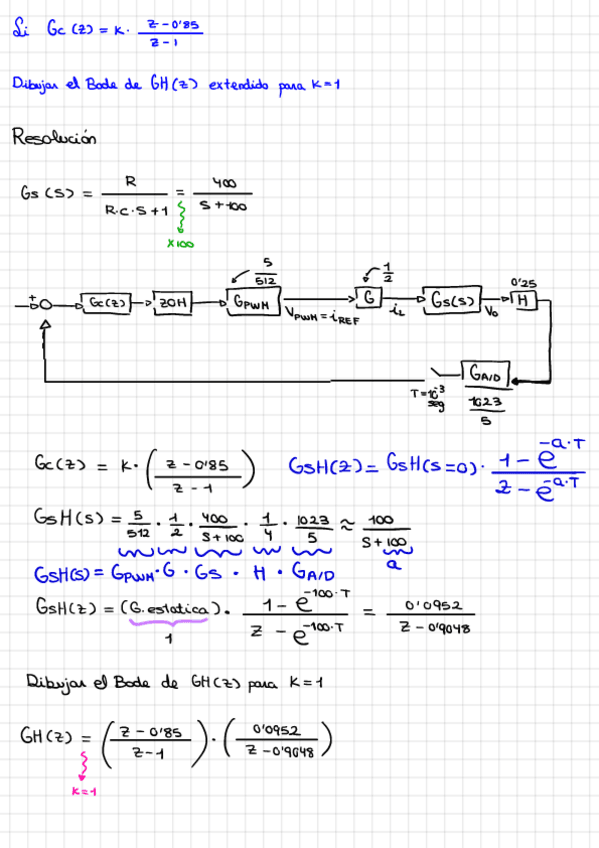 Si Gc (z) = K · z - 0'85 / z - 1
Dibujar el Bode de GH(z) extendido para K = 1
Resolución
Gs (s) = R / R·C·S + 1 = 400 / S + 100
x100
5 / 512
1 / 2
0'25
+
Gc(z) ZOH GPWM G Gs(s) H
VPWM = iREF iL Vo
GA/D
T = 10^-3 seg
1023 / 5
Gc(z) = K · ( z - 0'85 / z - 1 ) GsH(z) = GsH(s=0) · 1 - e^-a·T / z - e^-a·T
GsH(s) = 5 / 512 · 1 / 2 · 400 / S + 100 · 1 / 4 · 1023 / 5 ≈ 100 / S + 100
a
GsH(s) = GPWM · G · Gs · H · GA/D
GsH(z) = (G. estatica) · 1 - e^-100·T / z - e^-100·T = 0'0952 / z - 0'9048
1
Dibujar el Bode de GH(z) para K = 1
GH(z) = ( z - 0'85 / z - 1 ) · ( 0'0952 / z - 0'9048 )
K = 1